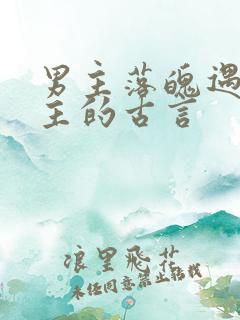 男主落魄遇
主的古言
浪里飞花
未经同意禁止转载